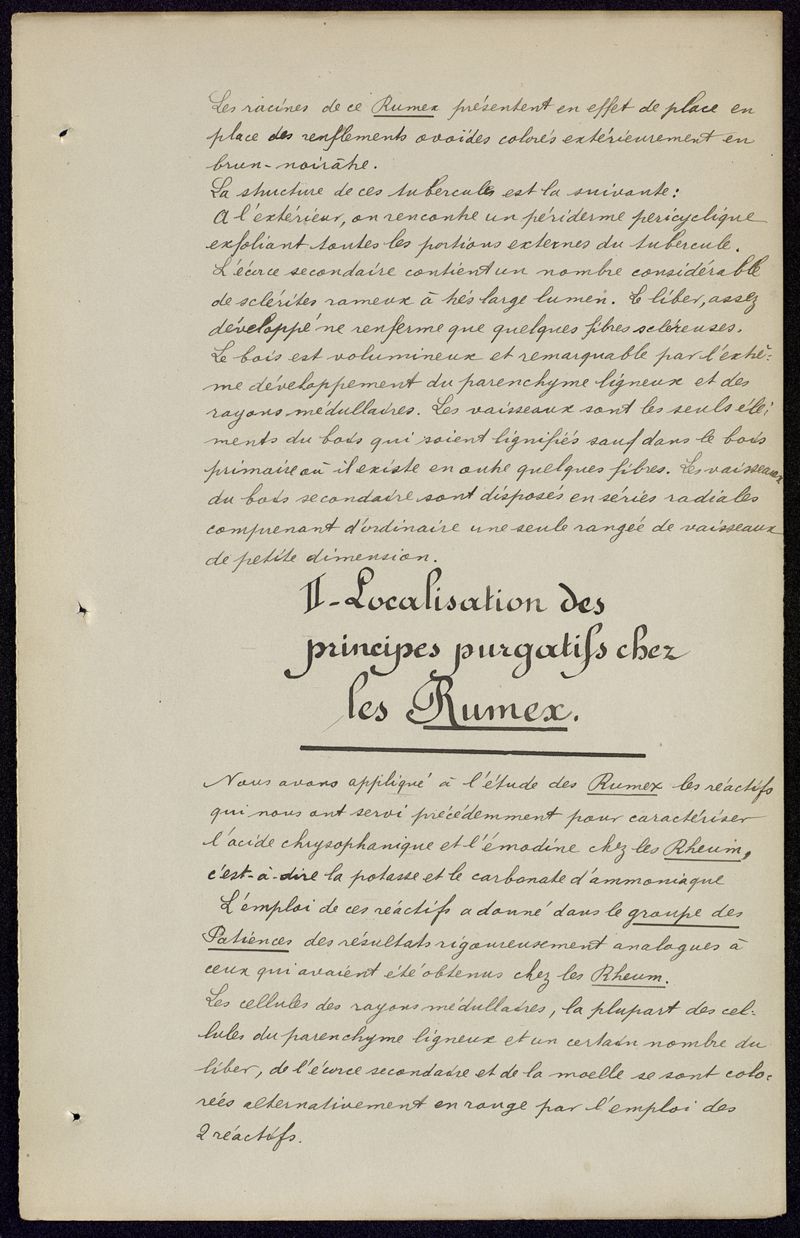 Les racines de ce Rumex présentent en effet de place en
place des renflements ovoïdes colorés extérieurement en
brun-noirâtre.
La structure de ces tubercules est la suivante:
A l'extérieur, on rencontre un périderme péricyclique
exfoliant toutes les portions externes du tubercule.
L'écorce secondaire contient un nombre considérable
de sclérites rameux à très large lumen. Le liber, assez
développé ne renferme que quelques fibres scléreuses.
Le bois est volumineux et remarquable par l'extrê-
me développement du parenchyme ligneux et des
rayons médullaires. Les vaisseaux sont les seuls élé-
ments du bois qui soient lignifiés sauf dans le bois
primaire où il existe en outre quelques fibres. Les vaisseaux
du bois secondaire sont disposés en séries radiales
comprenant d'ordinaire une seule rangée de vaisseaux
de petite dimension.
II-Localisation des
principes purgatifs chez
les Rumex.
Nous avons appliqué à l'étude des Rumex les réactifs
qui nous ont servi précédemment pour caractériser
l'acide chrysophanique et l'émodine chez les Rheum,
c'est-à-dire la potasse et le carbonate d'ammoniaque
L'emploi de ces réactifs a donné dans le groupe des
Patiences des résultats rigoureusement analogues à
ceux qui avaient été obtenus chez les Rheum.
Les cellules des rayons médullaires, la plupart des cel-
lules du parenchyme ligneux et un certain nombre du
liber, de l'écorce secondaire et de la moelle se sont colo-
rées alternativement en rouge par l'emploi des
2 réactifs.